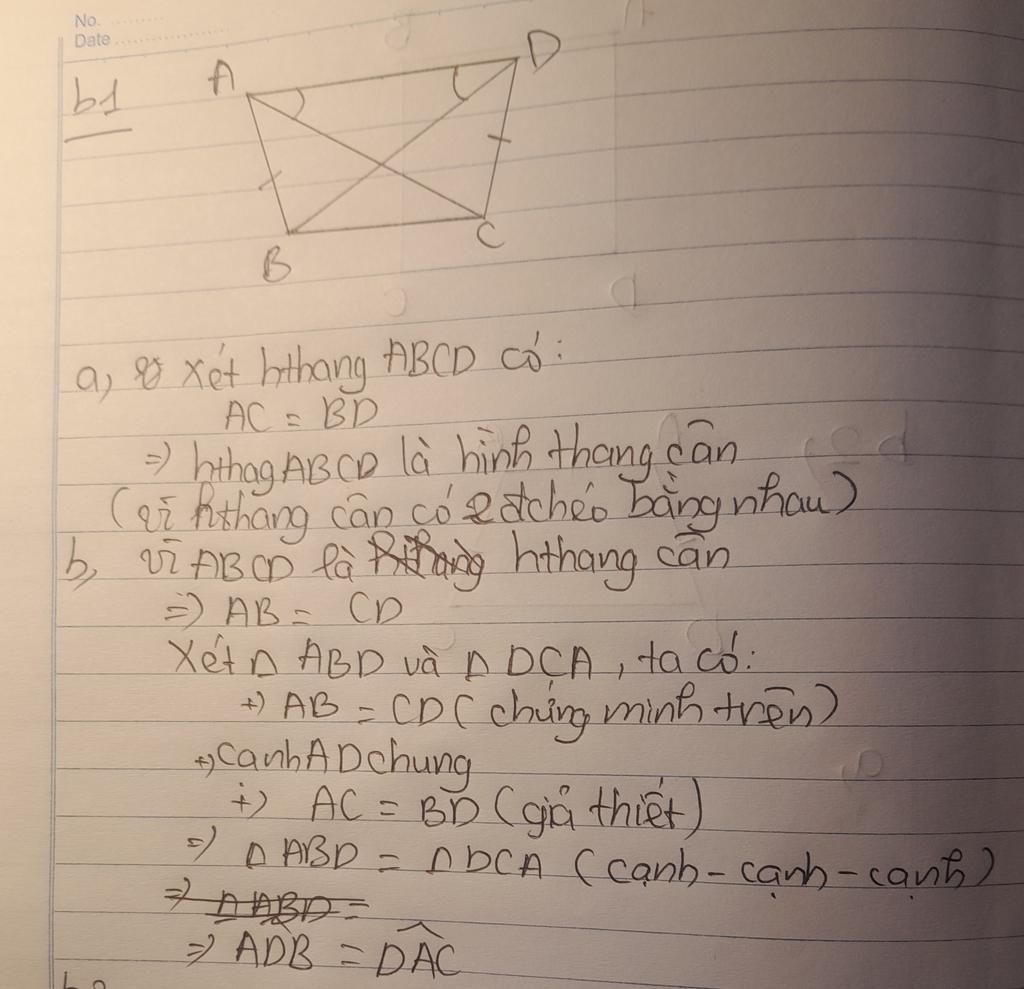 No. ..........
Date ....................
b1
A
D
B
C
a, Xét hthang ABCD có:
AC = BD
=) hthag ABCD là hình thang cân
(vì hthang cân có 2 đchéo bằng nhau)
b, vì ABCD là hthang cân
=) AB = CD
Xét Δ ABD và Δ DCA, ta có:
+) AB = CD (chứng minh trên)
+) cạnh AD chung
+) AC = BD (giả thiết)
=) Δ ABD = Δ DCA (cạnh - cạnh - cạnh)
=) Δ ABD =
=) ADB = DAC